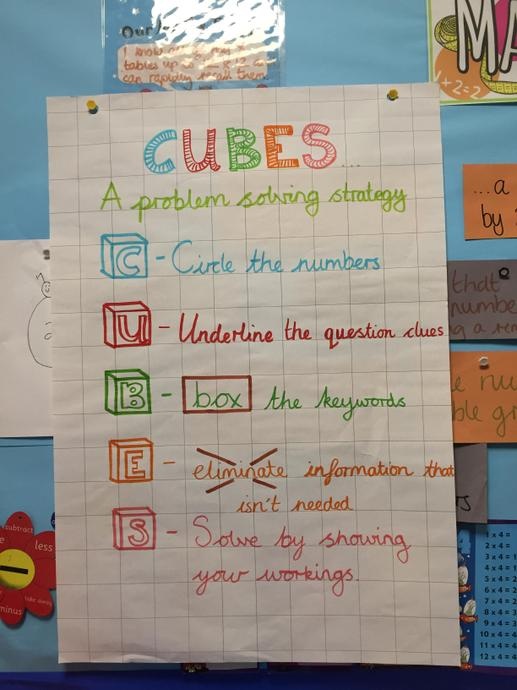 I know
tables up to 12 x 12 &
can rapidly recall them.
MA
1+2=2
CUBES...
A problem solving strategy
C - Circle the numbers
U - Underline the question clues
B - box the keywords
E - eliminate information that
isn't needed
S - Solve by showing
your workings.
...a
by
that
numbe
g a
subtract
less
minus
take away
1 x 4 =
2 x 4 =
3 x 4 =
4 x 4 =
5 x 4 =
6 x 4 =
7 x 4 =
8 x 4 =
9 x 4 =
10 x 4 =
11 x 4 =
12 x 4 =